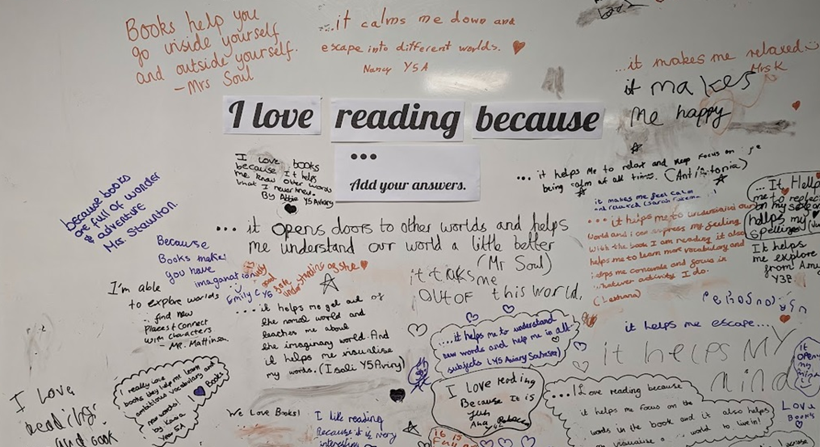 Books help you
go inside yourself
and outside yourself.
- Mrs Soul
...it calms me down and
escape into different worlds.
Nancy Y5A
...it makes me relaxed
Mrs K
it makes
me happy
I love reading because
...
Add your answers.
I love books
because it helps
me know other words
that I never knew.
By
Y5 Aviary
...it helps me to relax and keep focus on
being calm at all times.
it makes me feel calm
and relaxed
because books
are full of wonder
& adventure
Mrs. Staunton
... it opens doors to other worlds and helps
me understand our world a little better
(Mr Soul)
Because
Books make
you have
Emily C Y6
I'm able
to explore worlds
find new
places & connect
with characters
- Mr. Mattinson
it takes me
OUT OF this world.
... it helps me to understand
world and I can express my feeling
with the book I am reading it also
helps me to learn more vocabulary and
helps me concentrate and focus in
whatever activity I do.
... It Helps
me to
on my
helps my
spellings
It helps
me explore
from Amy
Y3P
...it helps me get out of
the normal world and
teaches me about
the imaginary world. And
it helps me visualise
my words. (
Y5 Aviary)
...it helps me to understand
new words and help me in all
subjects (Y5 Aviary
it helps me escape...
it helps MY
mind
I really love
books they help me learn
ambitious vocabulary and
new words!
by
Year 5A
I
Books
I Love
reading
and
We Love Books!
I like reading
Because it is very
interesting
I LOVE Reading
Because It is
fun
...I love reading because
it helps me focus on the
words in the book and it also helps
visualise a world to live in!
Love
Books